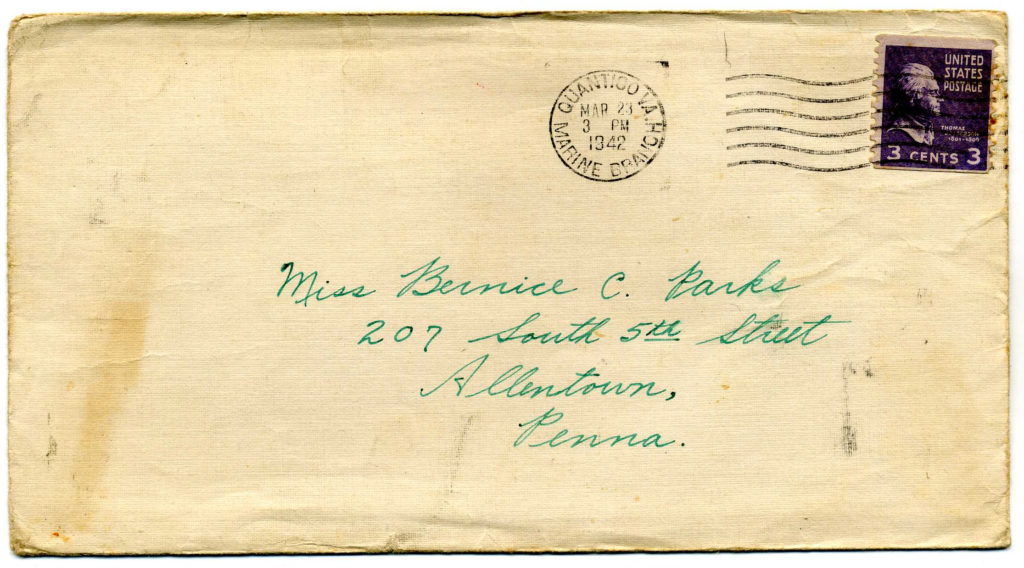 QUANTICO VA.
MAR 23
3 PM
1942
MARINE BRANCH
UNITED
STATES
POSTAGE
THOMAS
1801-1809
3 CENTS 3
Miss Bernice C. Parks
207 South 5th Street
Allentown,
Penna.